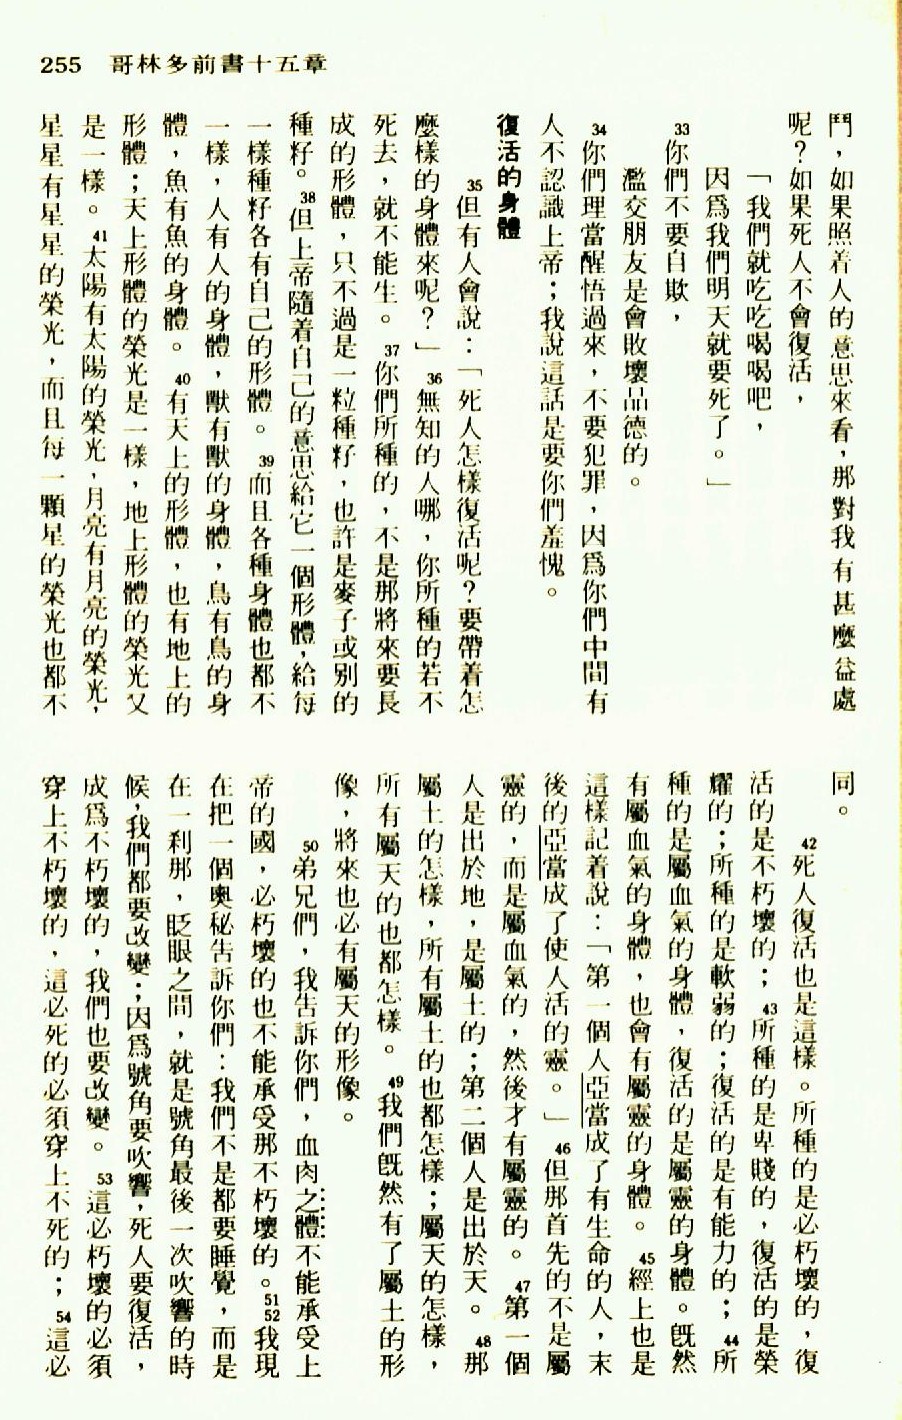 255 哥林多前書十五章
鬥，如果照着人的意思來看，那對我有甚麼益處
呢？如果死人不會復活，
「我們就吃吃喝喝吧，
因爲我們明天就要死了。」
33你們不要自欺，
濫交朋友是會敗壞品德的。
34你們理當醒悟過來，不要犯罪，因爲你們中間有
人不認識上帝；我說這話是要你們羞愧。
復活的身體
35但有人會說：「死人怎樣復活呢？要帶着怎
麼樣的身體來呢？」36無知的人哪，你所種的若不
死去，就不能生。37你們所種的，不是那將來要長
成的形體，只不過是一粒種籽，也許是麥子或別的
種籽。38但上帝隨着自己的意思給它一個形體，給每
一樣種籽各有自己的形體。39而且各種身體也都不
一樣，人有人的身體，獸有獸的身體，鳥有鳥的身
體，魚有魚的身體。40有天上的形體，也有地上的
形體；天上形體的榮光是一樣，地上形體的榮光又
是一樣。41太陽有太陽的榮光，月亮有月亮的榮光，
星星有星星的榮光，而且每一顆星的榮光也都不
同。
42死人復活也是這樣。所種的是必朽壞的，復
活的是不朽壞的；43所種的是卑賤的，復活的是榮
耀的；所種的是軟弱的；復活的是有能力的；44所
種的是屬血氣的身體，復活的是屬靈的身體。旣然
有屬血氣的身體，也會有屬靈的身體。45經上也是
這樣記着說：「第一個人亞當成了有生命的人，末
後的亞當成了使人活的靈。」46但那首先的不是屬
靈的，而是屬血氣的，然後才有屬靈的。47第一個
人是出於地，是屬土的；第二個人是出於天。48那
屬土的怎樣，所有屬土的也都怎樣；屬天的怎樣，
所有屬天的也都怎樣。49我們旣然有了屬土的形
像，將來也必有屬天的形像。
50弟兄們，我告訴你們，血肉之體不能承受上
帝的國，必朽壞的也不能承受那不朽壞的。51 52我現
在把一個奧秘告訴你們：我們不是都要睡覺，而是
在一刹那，眨眼之間，就是號角最後一次吹響的時
候，我們都要改變；因爲號角要吹響，死人要復活，
成爲不朽壞的，我們也要改變。53這必朽壞的必須
穿上不朽壞的，這必死的必須穿上不死的；54這必